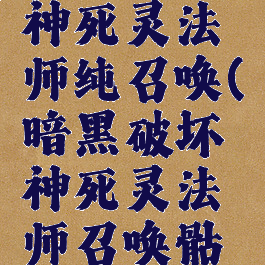 神死灵法
师纯召唤(
暗黑破坏
神死灵法
师召唤骷